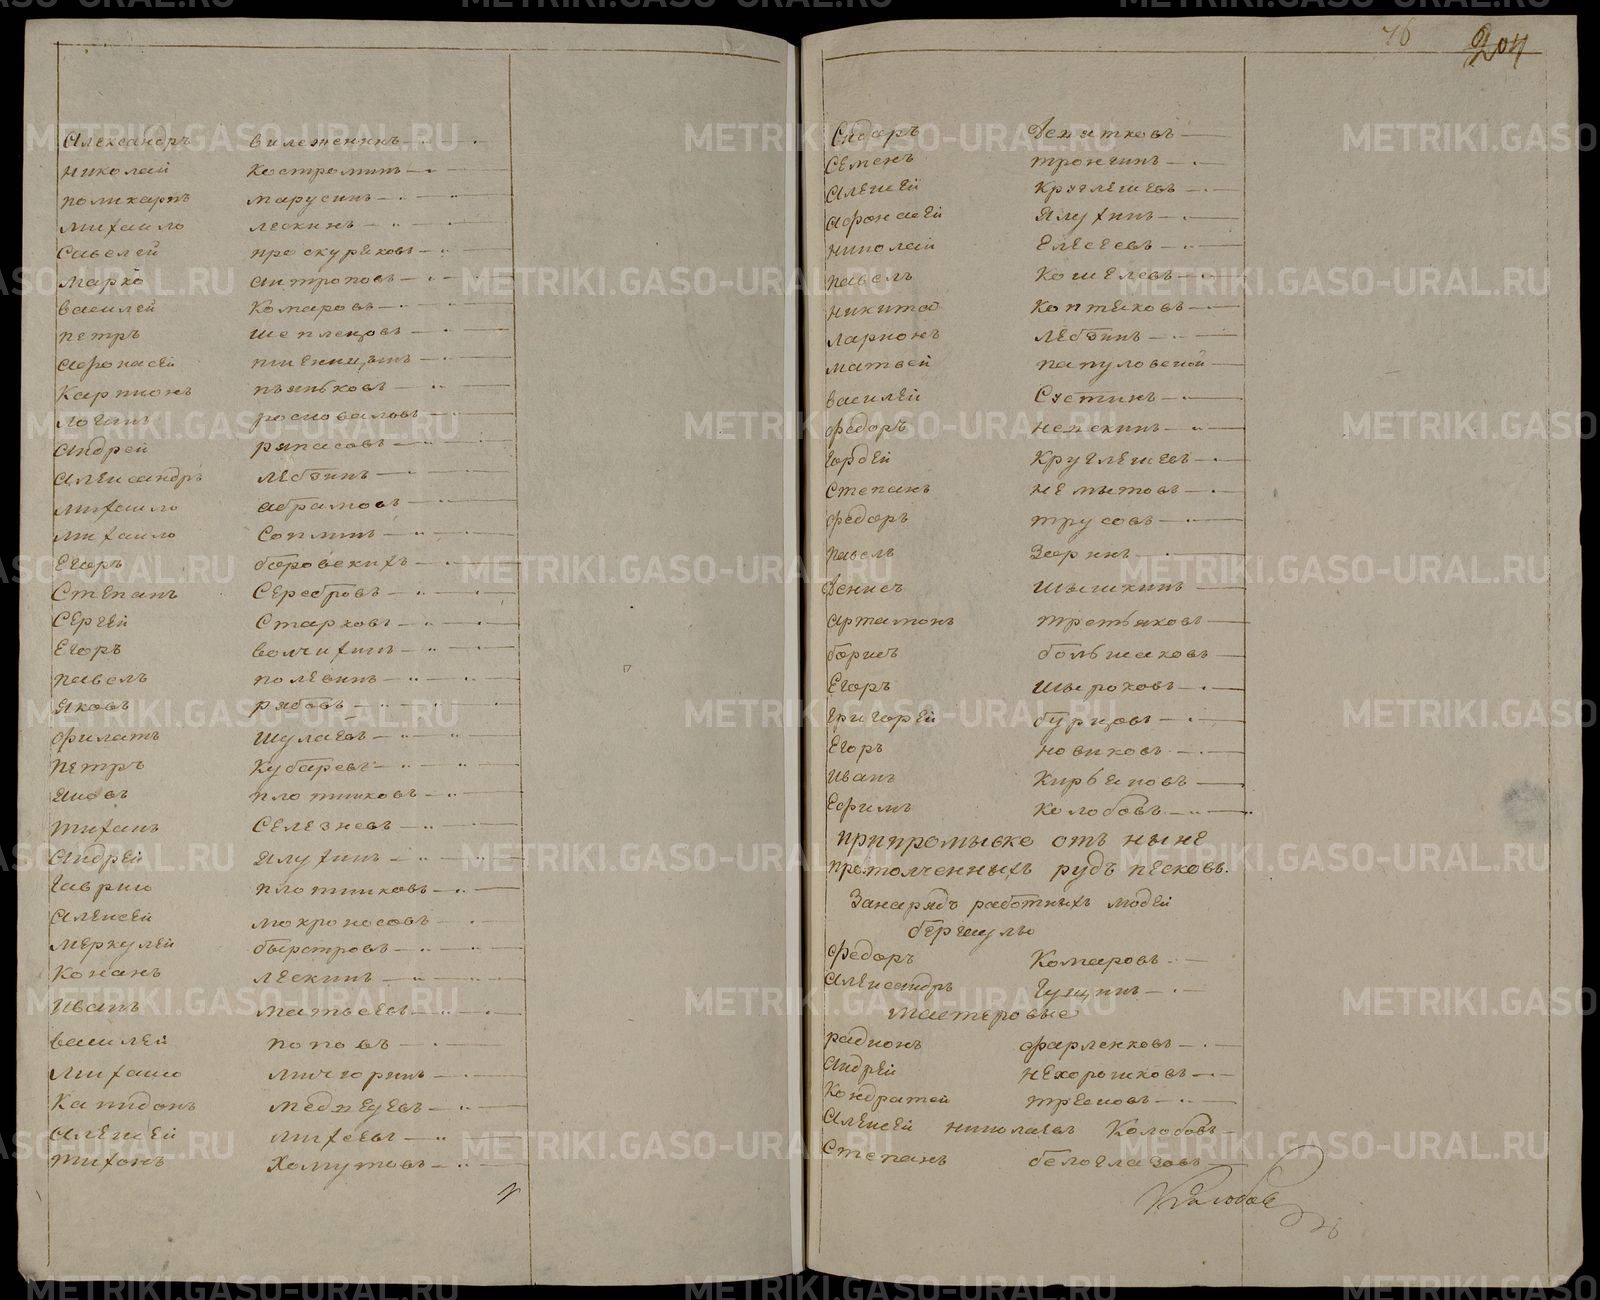 Александръ вилеженинъ
николай Костроминъ
поликарпъ марусинъ
михаило лескинъ
савелей проскуряковъ
марко антроповъ
василей Комаровъ
петръ шеплецовъ
афонасей пшеницынъ
Карпионъ пьянковъ
логинъ
андрей
александръ лебтинъ
михаило абрамовъ
михаило Сопминъ
Егоръ боровскихъ
Степанъ Серебровъ
Сергей Старковъ
Егоръ волчихинъ
павелъ полевинъ
яковъ рябовъ
филатъ шулаевъ
петръ Кубаревъ
яковъ плотниковъ
тиханъ Селезневъ
андрей ялухинъ
гаврило плотниковъ
алексей мохроносовъ
меркулей быстровъ
Конанъ лескинъ
иванъ матвеевъ
василей поповъ
михаило мичюринъ
Капидонъ медведевъ
алексей михеевъ
тихонъ Хомутовъ
76 204
Сидаръ Девятковъ
Семенъ тронинъ
алексей Круглешевъ
афонасей ялухинъ
николай Елесеевъ
павелъ Кошелевъ
никита Коптяковъ
ларионъ лебтинъ
матвей папуловской
василей Сустинъ
федоръ
гордей Круглешевъ
Степанъ немытовъ
федоръ трусовъ
павелъ Зоринъ
Денисъ шышкинъ
артамонъ третьяковъ
борисъ большаковъ
Егоръ шыроковъ
григорей бурцовъ
Егоръ новиковъ
иванъ Кирьяновъ
Ефимъ Колобовъ
припромывке отъ ныне
протолченныхъ рудъ песковъ.
Занарядъ работныхъ людей
бергшулы
федоръ Комаровъ
александръ Гущинъ
мастеровые
радионъ фарленковъ
андрей нехорошковъ
Кондратей
алексей николаевъ Колобовъ
Степанъ белоглазовъ
Колобовъ